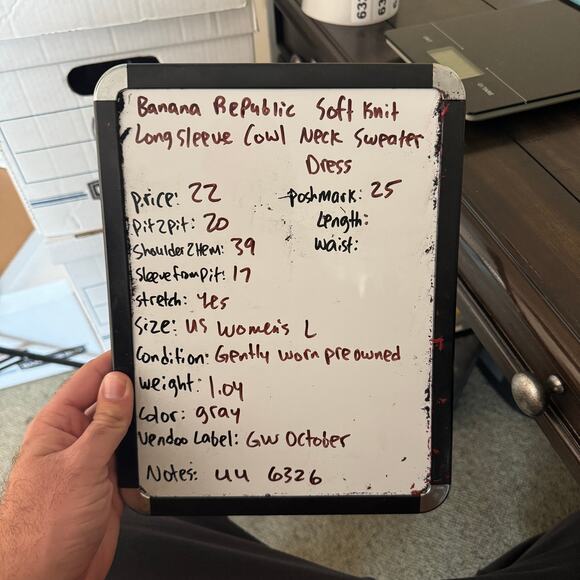 Banana Republic Soft Knit
Longsleeve Cowl Neck Sweater
Dress
price: 22
poshmark: 25
Pit2pit: 20
Length:
Shoulder2Hem: 39
waist:
Sleevefrompit: 17
stretch: yes
Size: US Women's L
Condition: Gently worn preowned
weight: 1.04
Color: gray
Vendoo Label: GW October
Notes: UU 6326